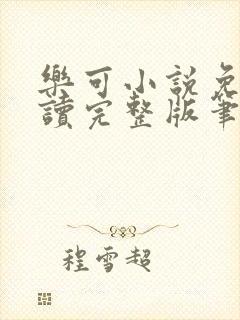 樂可小說免
讀完整版筆
程雪超